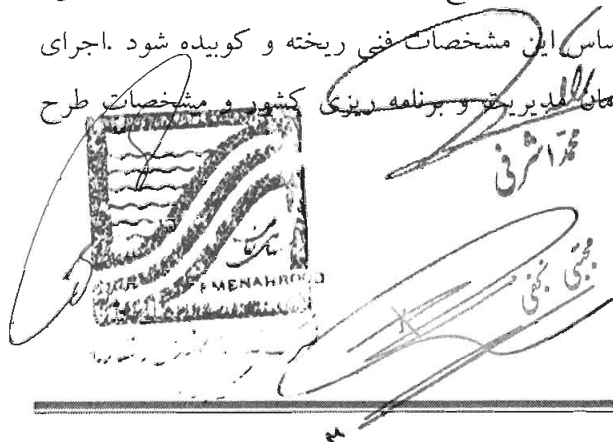 ساس این مشخصات فنی ریخته و کوبیده شود .اجرای
مان مدیریت و برنامه ریزی کشور و مشخصات طرح
محمد اشرفی
MENAHROOD
مجتبی نجفی
۳